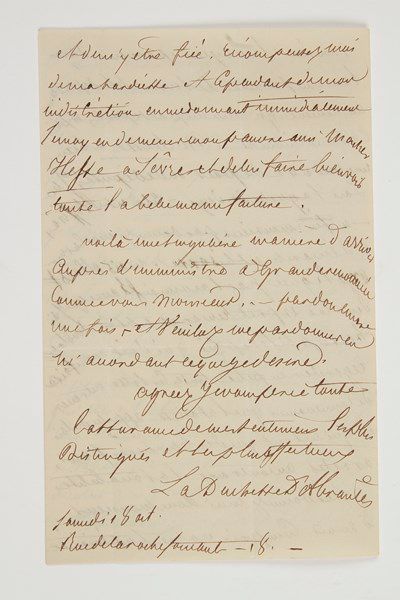 et d'en y être fiée. Récompensez moi
de ma hardiesse et cependant de mon
indiscrétion en me donnant immédiatement
le moyen de mener mon pauvre ami Master
Hesse à Sèvres et de lui faire bien voir
toute la belle manufacture.
voilà une singulière manière d'arriver
auprès d'un ministre à grande
comme vous Monsieur. - pardon encore
une fois - et veuillez me pardonner en
m'accordant ce que je désire.
agréez je vous prie toute
l'assurance de mes sentiments les plus
Distingués et les plus affectueux
La Duchesse D'Abrantès
Samedi 18 oct.
Rue de La rochefoucault - 18. -